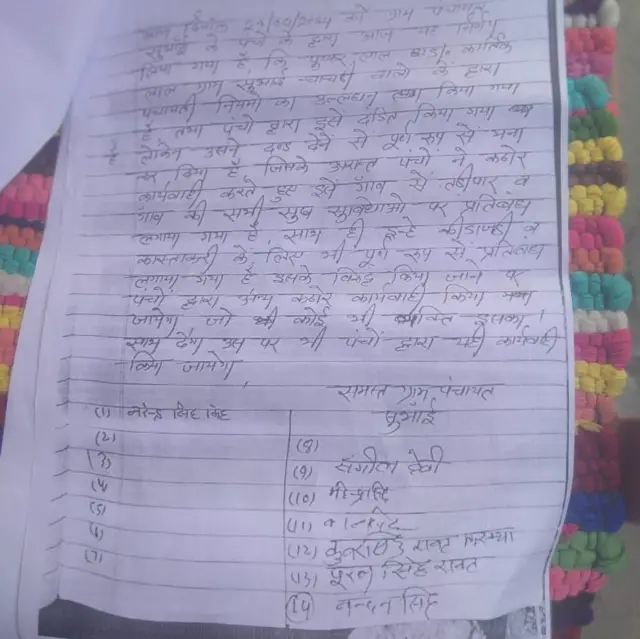 आज दिनांक को ग्राम पंचायत
के पंचो के द्वारा आज यह निर्णय
लिया गया है कि पुष्कर लाल कार्तिक
लाल ग्राम वालो के द्वारा
पंचायती नियमो का उल्लंघन किया गया
है तथा पंचो द्वारा इसे दण्डित किया गया
है लेकिन उसने दण्ड देने से पूर्ण रूप से मना
कर दिया है जिसके उपरान्त पंचो ने कठोर
कार्यवाही करते हुए इसे गाँव से तड़ीपार व
गाव की सभी सुख सुविधाओ पर प्रतिबंध
लगाया गया है साथ ही इन्हे व
के लिए भी पूर्ण रूप से प्रतिबंध
लगाया गया है इसके विरुद्ध किया जाने पर
पंचो द्वारा अन्य कठोर कार्यवाही किया
जायेगा जो भी कोई भी व्यक्ति इसका
साथ देगा उस पर भी पंचों द्वारा यही कार्यवाही
किया जायेगा
समस्त ग्राम पंचायत
(1) नरेन्द्र सिंह
(2)
(3)
(4)
(5)
(6)
(7)
(8)
(9) संगीता देवी
(10)
(11)
(12) रावत
(13) पूरन सिंह रावत
(14) चन्दन सिंह